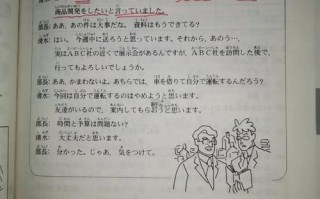 商品開発をしたいと言っていました。
部長：ああ、あの件は大事だな。資料はもうできてる？
清水：はい。今週中に送ろうと思っています。それから、あのう…。
実はABC社の近くで展示会があるんですが、ABC社を訪問した後で、
行ってもよろしいでしょうか。
部長：ああ、かまわないよ。あちらでは、車を借りて自分で運転するんだろう？
清水：今回は自分で運転するのはやめようと思います。
友達がいるので、案内してもらおうと思います。
部長：時間と予算は問題ない？
清水：大丈夫だと思います。
部長：分かった。じゃあ、気をつけて。